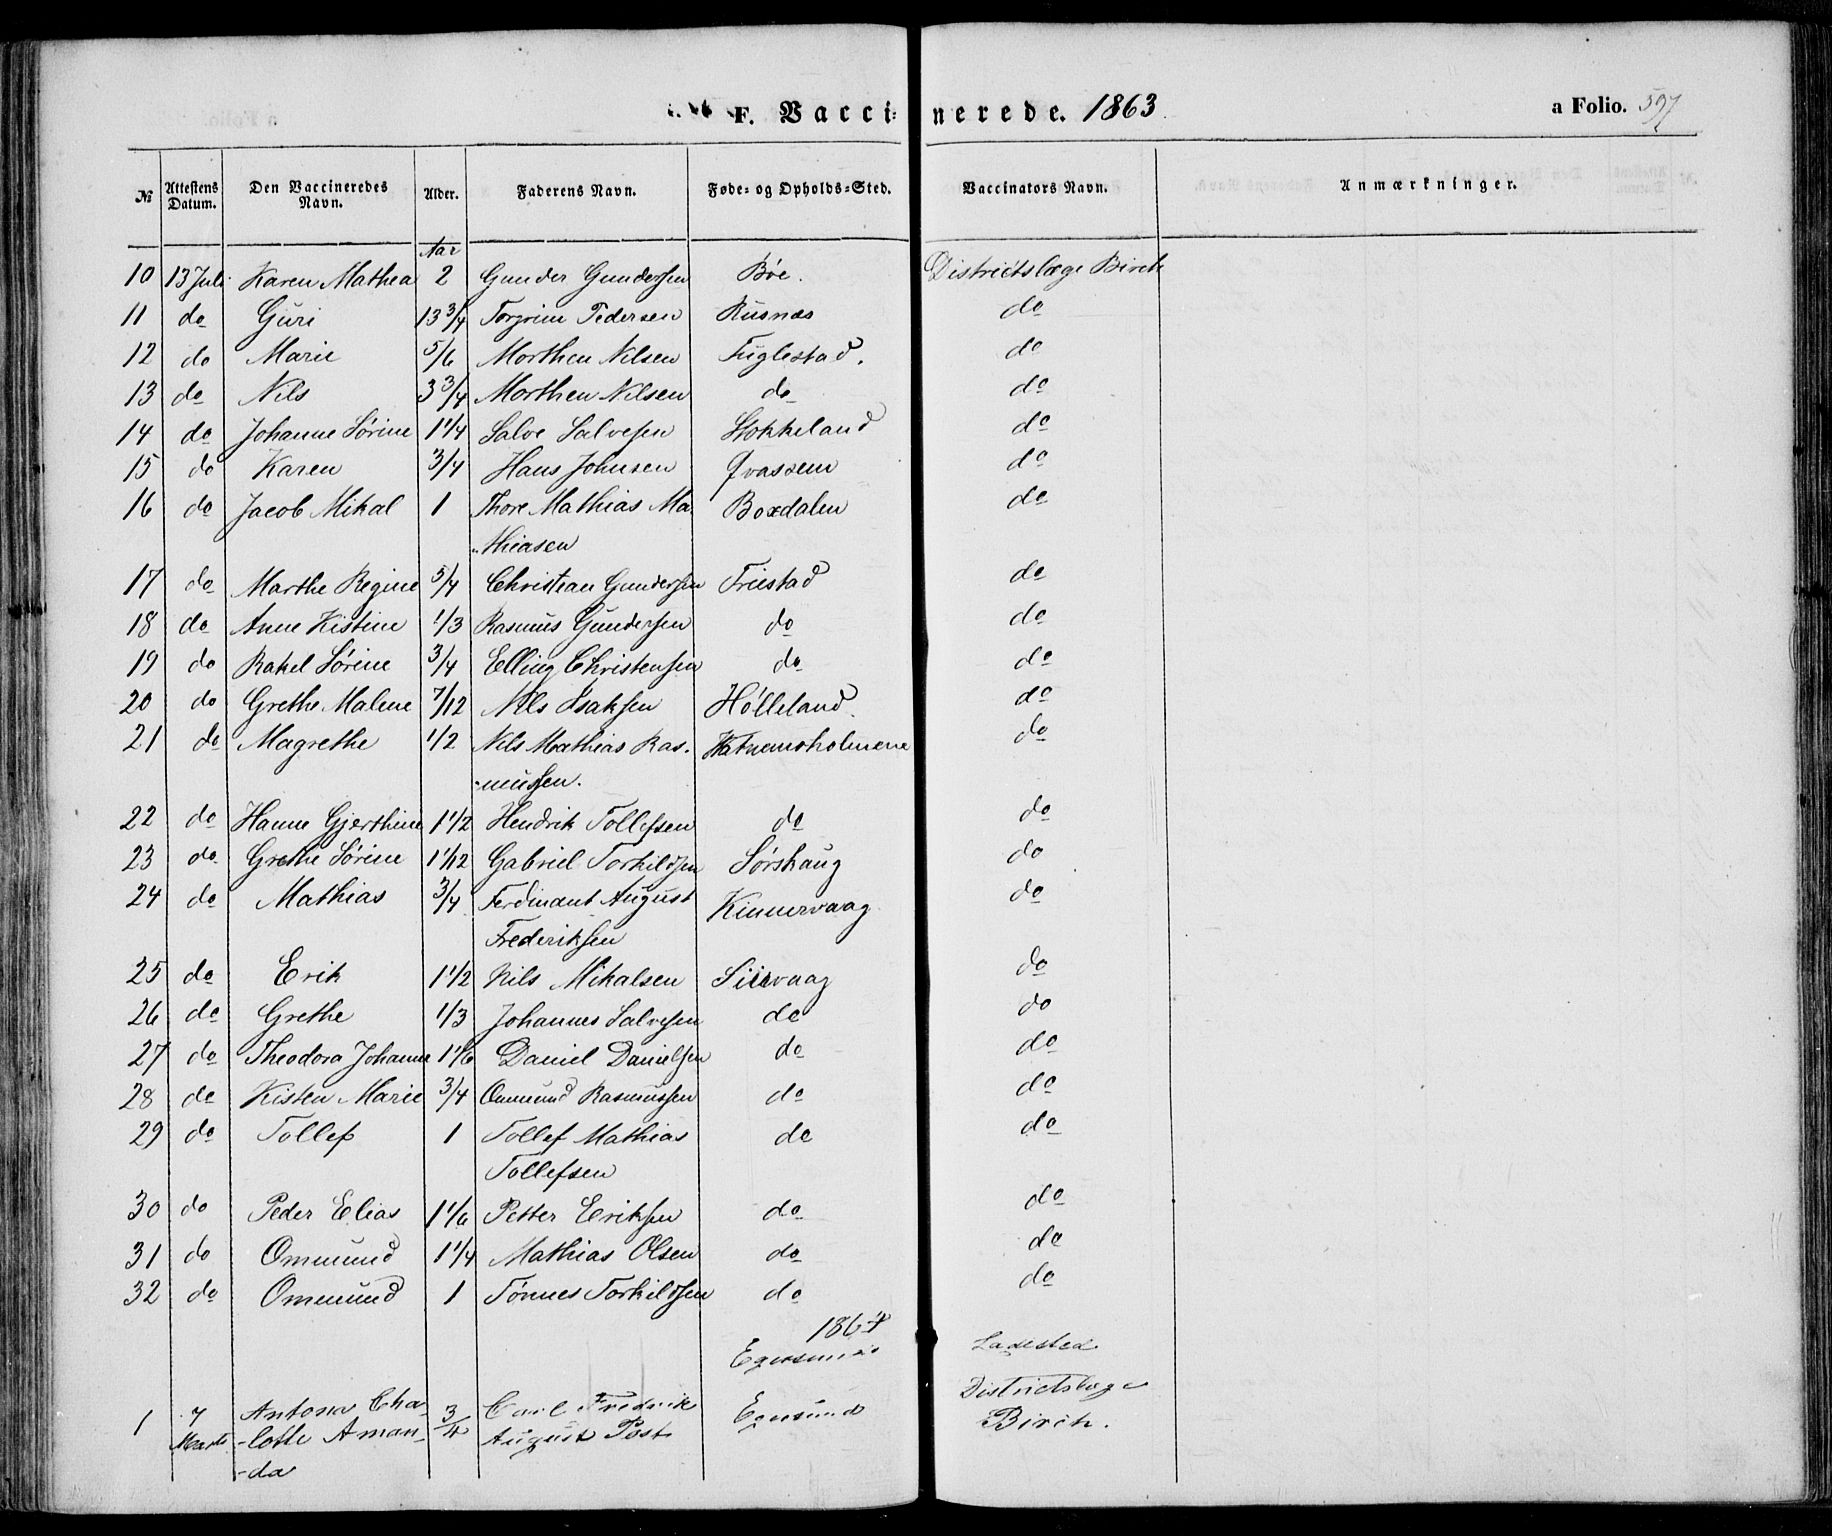 F. Vaccinerede. 1863. a Folio. 597
№ Attestens Datum. Den Vaccineredes Navn. Alder. Faderens Navn. Føde- og Opholds-Sted. Vaccinators Navn. Anmærkninger.
Aar
10 13 Juli Karen Mathea 2 Gunder Gundersen Bøe. Districtslæge Birch
11 do Guri 13 3/4 Torgrim Pedersen Rusnæs do
12 do Marie 5/6 Morthen Nilsen Fuglestad. do
13 do Nils 3 3/4 Morthen Nilsen do do
14 do Johanne Sørine 1 1/4 Salve Salvesen Stokkeland do
15 do Karen 3/4 Hans Johnsen Qvassem do
16 do Jacob Mikal 1 Thore Mathias Ma- Boxdalen do
-thiasen
17 do Marthe Regine 5/4 Christian Gundersen Friestad do
18 do Anne Kistine 1/3 Rasmus Gundersen do do
19 do Rakel Sørine 3/4 Elling Christensen do do
20 do Grethe Malene 7/12 Nils Isaksen Hølleland. do
21 do Magrethe 1/2 Nils Mathias Ras- Hatnemoholmene do
-mussen.
22 do Hanne Gjerthine 1 1/2 Hendrik Tollefsen do do
23 do Grethe Sørine 1 1/12 Gabriel Torkildsen Sørskaug do
24 do Mathias 3/4 Ferdinant August Kinnervaag do
Frederiksen
25 do Erik 1 1/2 Nils Mikalsen Sirevaag do
26 do Grethe 1/3 Johannes Salvesen do do
27 do Theodora Johanne 1 1/6 Daniel Danielsen do do
28 do Kisten Marie 3/4 Ommund Rasmussen do do
29 do Tollef 1 Tollef Mathias do do
Tollefsen
30 do Peder Elias 1 1/6 Petter Eriksen do do
31 do Ommund 1 1/4 Mathias Olsen do do
32 do Ommund 1 Tønnes Torkildsen do do
1864
Egersunds Ladested
Districtslæge
1 7 Antona Cha- 3/4 Carl Fredrik Egersund Birch.
Marts -lotte Aman- August Post
-da